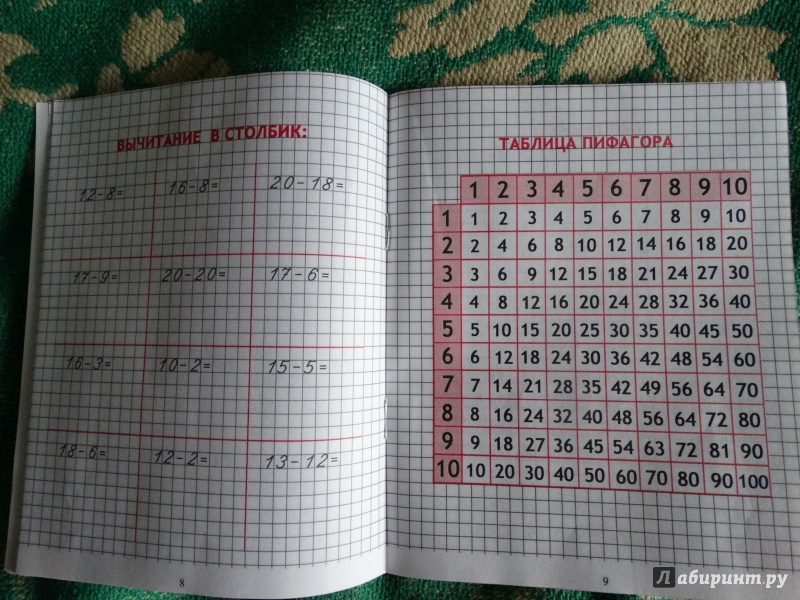 ВЫЧИТАНИЕ В СТОЛБИК:
12-8= 16-8= 20-18=
17-9= 20-20= 17-6=
16-3= 10-2= 15-5=
18-6= 12-2= 13-12=
8
ТАБЛИЦА ПИФАГОРА
1 2 3 4 5 6 7 8 9 10
1 1 2 3 4 5 6 7 8 9 10
2 2 4 6 8 10 12 14 16 18 20
3 3 6 9 12 15 18 21 24 27 30
4 4 8 12 16 20 24 28 32 36 40
5 5 10 15 20 25 30 35 40 45 50
6 6 12 18 24 30 36 42 48 54 60
7 7 14 21 28 35 42 49 56 64 70
8 8 16 24 32 40 48 56 64 72 80
9 9 18 27 36 45 54 63 72 81 90
10 10 20 30 40 50 60 70 80 90 100
9
Лабиринт.ру